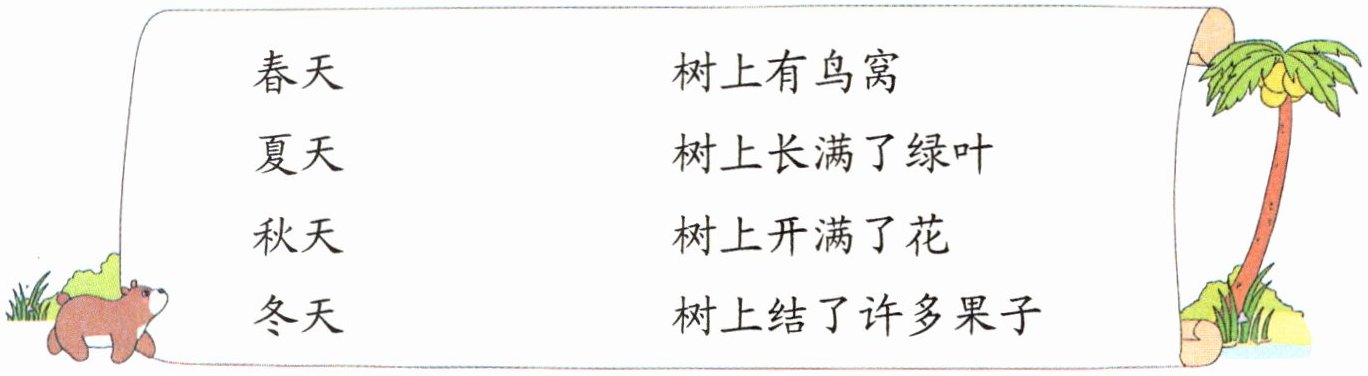 春天 树上有鸟窝
夏天 树上长满了绿叶
秋天 树上开满了花
冬天 树上结了许多果子